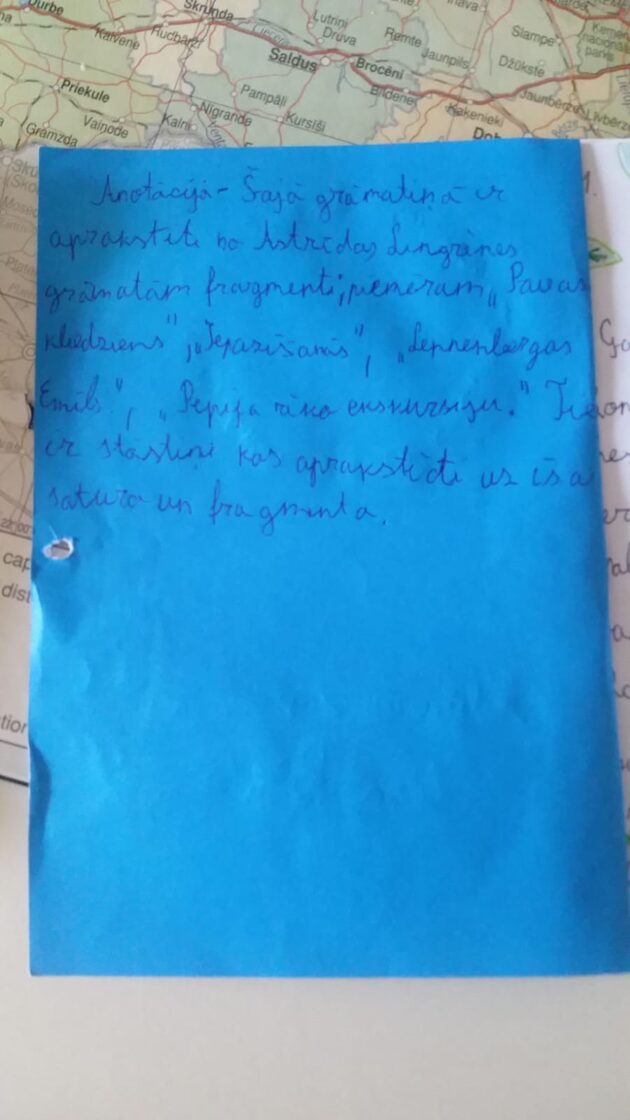 Durbe
Skrunda
Kalvene
Rudbārži
Cieceres
Saldus
Lutriņi
Druva
Remte
Brocēni
Jaunpils
Slampe
Džūkste
Priekule
Pampāļi
Blīdene
Kaķenieki
Jaunbērze
Līvbērze
Grāmzda
Vaiņode
Kalni
Nīgrande
Kursīši
Dob
Anotācijā - Šajā grāmatiņā ir
aprakstīti no Astrīdas Lingrēnes
grāmatām fragmenti; piemēram, „Pavas
kliedziens", „Iepazīšanās", „Lennenbergas
Emīls", „Pepija rīko ekskursiju." Tie
ir stāstiņi kas aprakstīti us īsa
satura un fragmenta.
cap
dist
tion